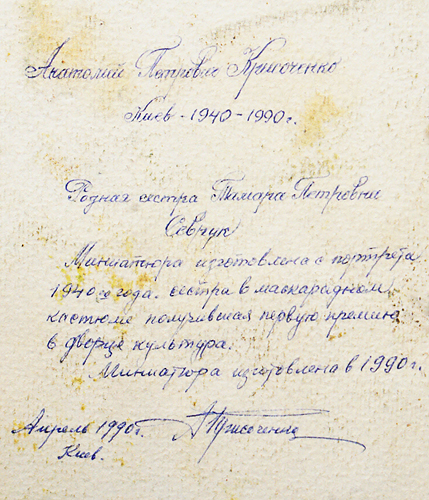 Анатолий Петрович Присоченко
Киев - 1940-1990 г.
Родная сестра Тамара Петровна
Севрук
Миниатюра изготовлена с портрета
1940 го года. сестра в маскарадном
костюме получившая первую премию
в дворце культура.
Миниатюра изготовлена в 1990 г.
Апрель 1990 г.
Киев.